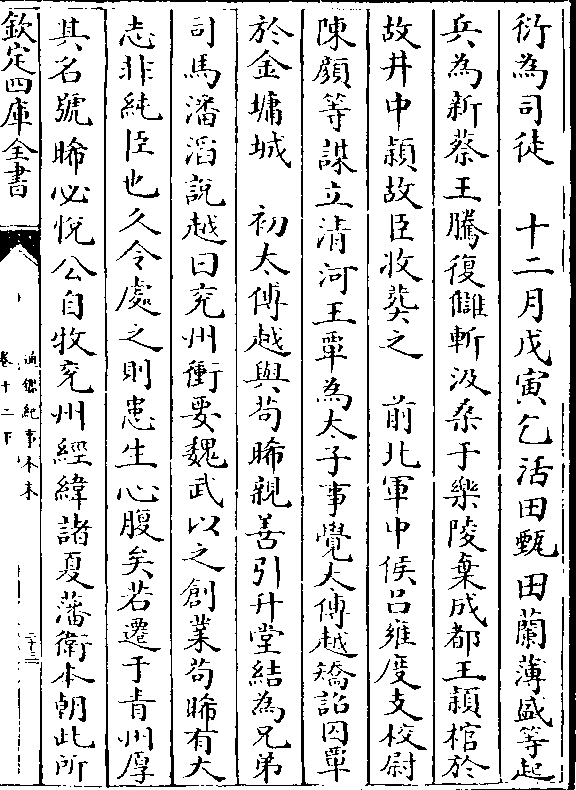 衍為司徒　十二月戊寅乞活田甄田蘭薄盛等起
兵為新蔡王騰復讎斬汲桑于樂陵棄成都王頴棺於
故井中頴故臣收葬之　前北軍中候呂雍度支校尉
陳顔等謀立清河王覃為太子事覺太傅越矯詔囚覃
於金墉城　初太傅越與苟晞親善引升堂結為兄弟
司馬潘滔說越曰兖州衝要魏武以之創業苟晞有大
志非純臣也久令處之則患生心腹矣若遷于青州厚
其名號晞必悅公自牧兖州經緯諸夏藩衛本朝此所
欽定四庫全書
通鑑紀事本末
卷十二下
二十三